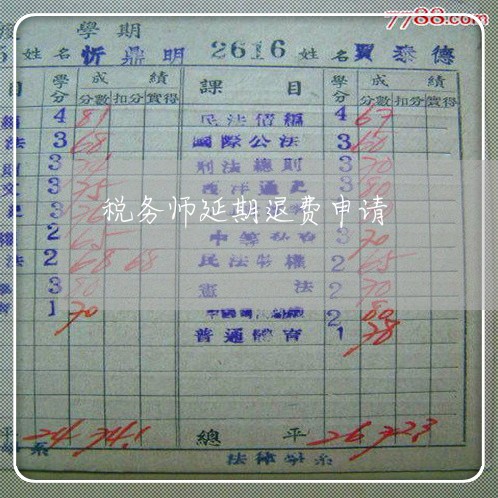 7788.com
學期
姓名 忻鼎明 2616 姓名 賈泰德
目 學分 成績 課目 學分 成績
分數 扣分 實得 分數 扣分 實得
4 81 民法債編 4 67
法 3 68 國際公法 3 60
3 刑法總則 3 70
3 75 西洋通史 3 80
税务师延期退费申请
2 65 3 70
法 2 68 68 民法物權 2 65
3 80 憲法 2 70
1 70 2 80
普通體育 1 78
平 24 74.1 總平 26 72.3
系 法律學系